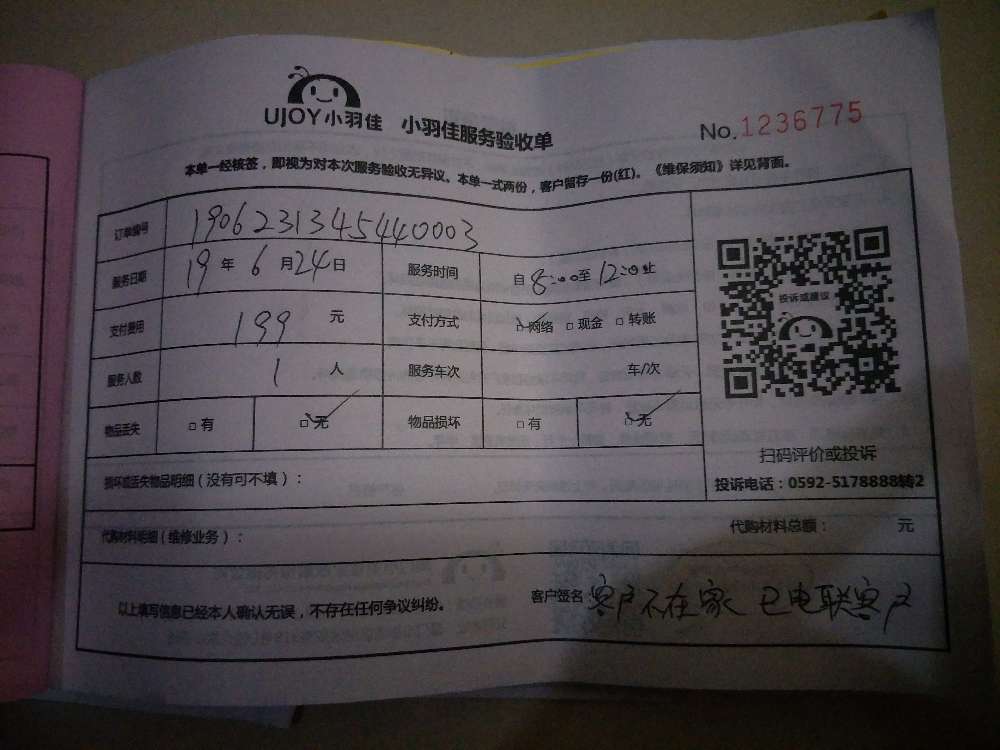 UJOY小羽佳 小羽佳服务验收单 No.1236775
本单一经核签，即视为对本次服务验收无异议。本单一式两份，客户留存一份(红)。《维保须知》详见背面。
订单编号 19062313454440003
服务日期 19年6月24日 服务时间 自8:00至12:00止
投诉或建议
支付费用 199 元 支付方式 □网络 □现金 □转账
服务人数 1 人 服务车次 车/次
物品丢失 □有 □无 物品损坏 □有 □无
扫码评价或投诉
投诉电话：0592-5178888转2
损坏或丢失物品明细（没有可不填）：
代购材料明细（维修业务）： 代购材料总额： 元
以上填写信息已经本人确认无误，不存在任何争议纠纷。 客户签名：客户不在家 已电联客户